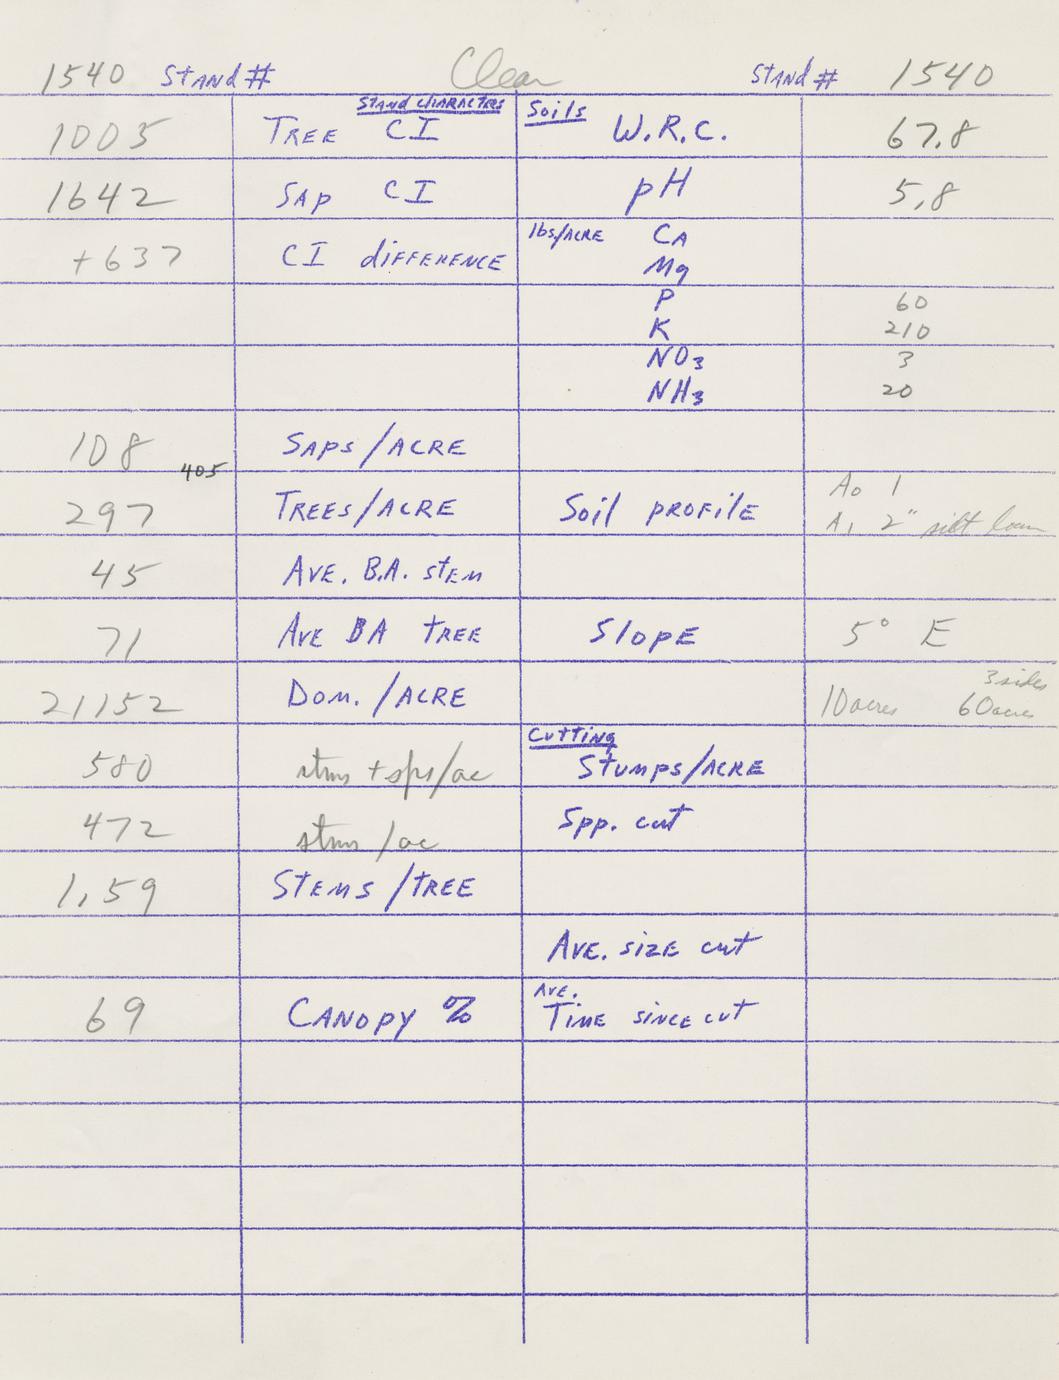 1540 Stand # Clear Stand # 1540
Stand Characters Soils
1005 Tree CI W.R.C. 67.8
1642 Sap CI pH 5.8
+637 CI difference lbs/Acre Ca
Mg
P 60
K 210
NO3 3
NH3 20
108 Saps/Acre
405
297 Trees/Acre Soil profile A0 1
A1 2" silt loam
45 Ave. B.A. stem
71 Ave BA tree Slope 5° E
21152 Dom./Acre 10 acres 3 sides 60 acres
Cutting
580 stms + sps/ac Stumps/Acre
472 stms/ac Spp. cut
1.59 Stems/tree
Ave. size cut
69 Canopy % Ave. Time since cut